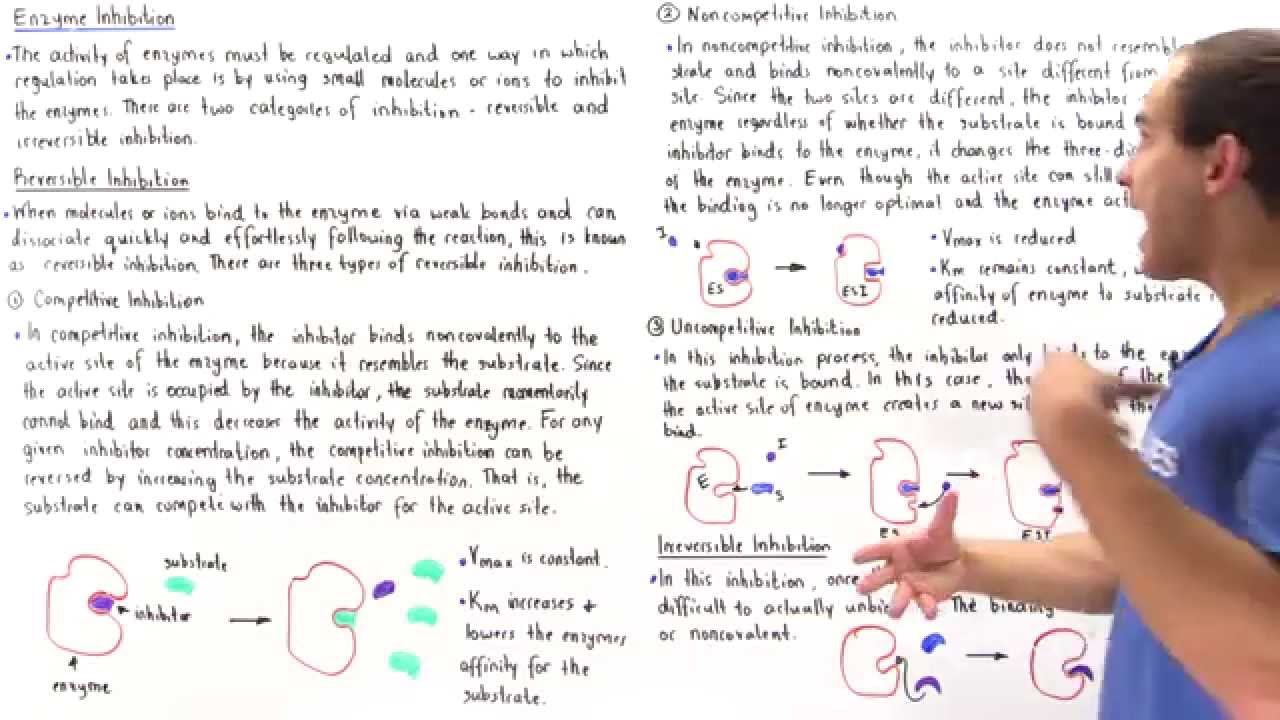 Enzyme Inhibition
•The activity of enzymes must be regulated and one way in which
regulation takes place is by using small molecules or ions to inhibit
the enzymes. There are two categories of inhibition - reversible and
irreversible inhibition.
Reversible Inhibition
•When molecules or ions bind to the enzyme via weak bonds and can
dissociate quickly and effortlessly following the reaction, this is known
as reversible inhibition. There are three types of reversible inhibition.
① Competitive Inhibition
• In competitive inhibition, the inhibitor binds noncovalently to the
active site of the enzyme because it resembles the substrate. Since
the active site is occupied by the inhibitor, the substrate momentarily
cannot bind and this decreases the activity of the enzyme. For any
given inhibitor concentration, the competitive inhibition can be
reversed by increasing the substrate concentration. That is, the
substrate can compete with the inhibitor for the active site.
substrate
inhibitor
enzyme
• Vmax is constant.
• Km increases +
lowers the enzymes
affinity for the
substrate.
② Noncompetitive Inhibition
• In noncompetitive inhibition, the inhibitor does not resembl
strate and binds noncovalently to a site different from
site. Since the two sites are different, the inhibitor
enzyme regardless of whether the substrate is bound
inhibitor binds to the enzyme, it changes the three-di
of the enzyme. Even though the active site can still
the binding is no longer optimal and the enzyme act
I
ES
ESI
• Vmax is reduced
• Km remains constant,
affinity of enzyme to substrate
reduced.
③ Uncompetitive Inhibition
• In this inhibition process, the inhibitor only binds to the
the substrate is bound. In this case, the of the
the active site of enzyme creates a new
bind.
E
I
S
ES
ESI
Irreversible Inhibition
• In this inhibition, once
difficult to actually The binding
or noncovalent.